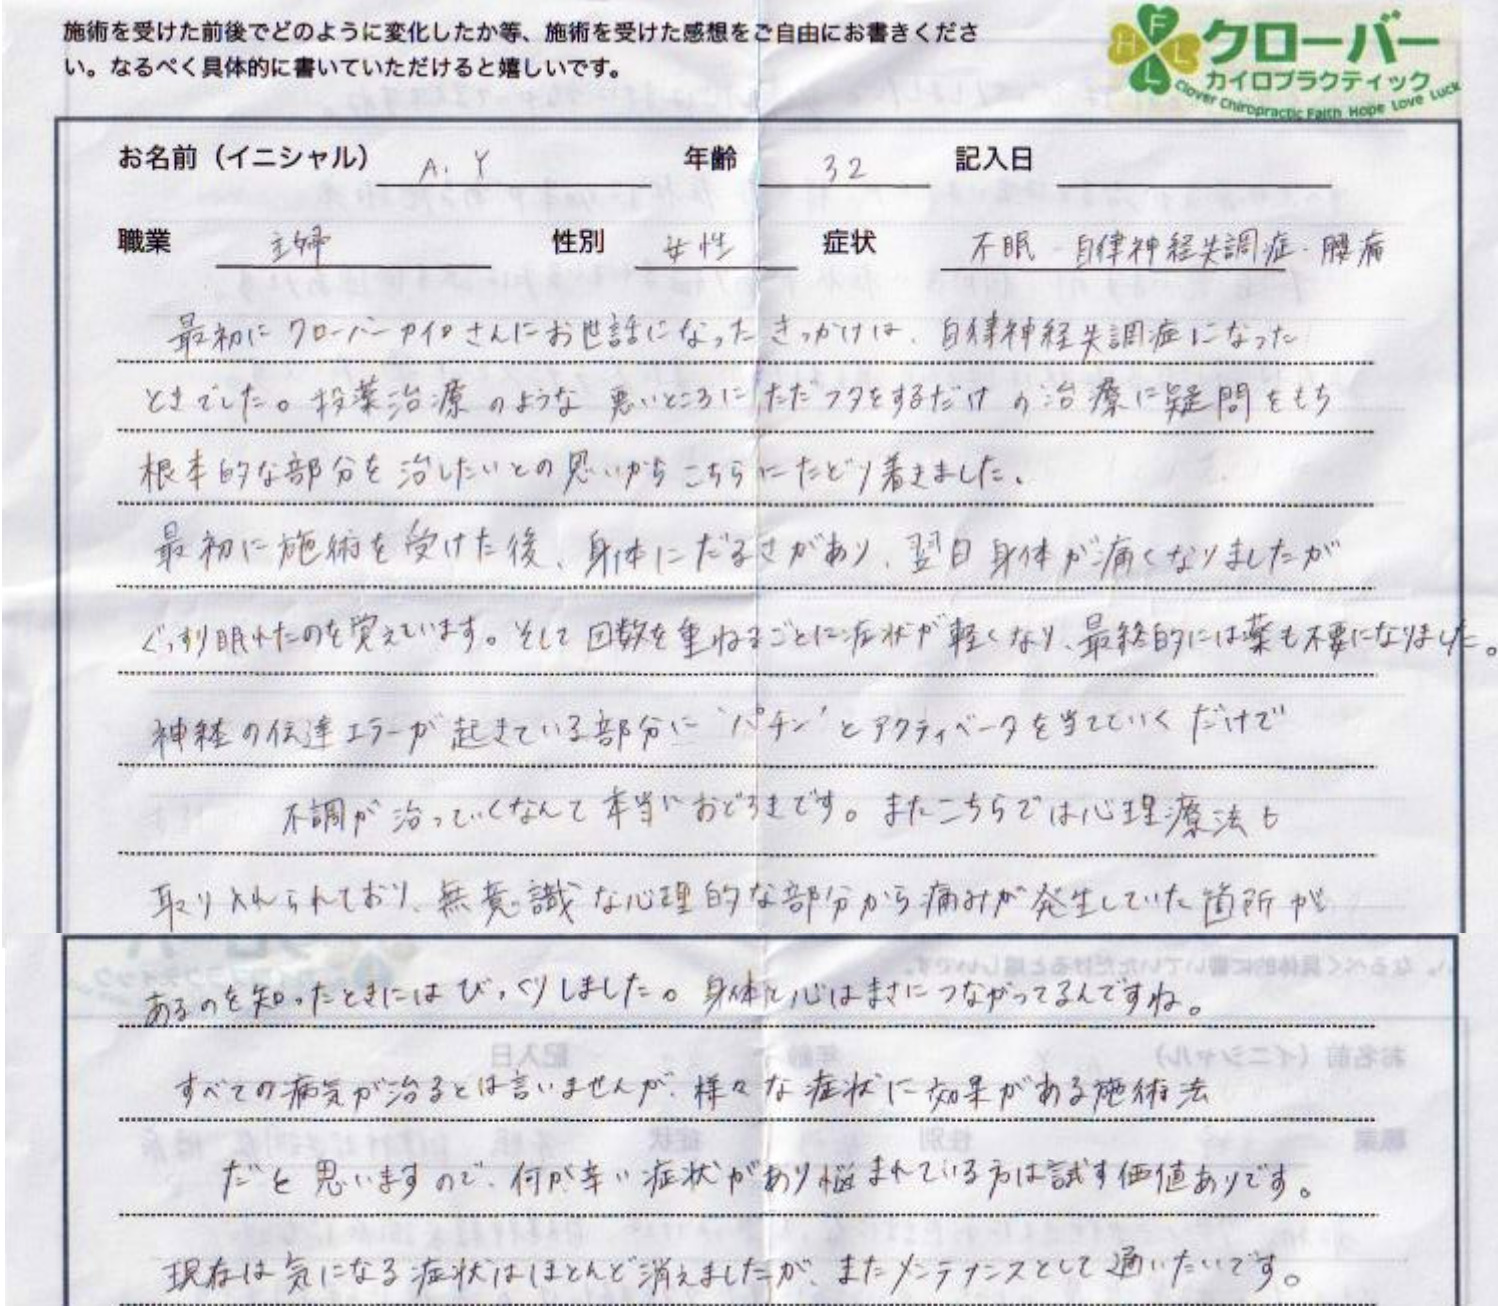 施術を受けた前後でどのように変化したか等、施術を受けた感想をご自由にお書きくださ
い。なるべく具体的に書いていただけると嬉しいです。
FHLL
クローバー
カイロプラクティック
Clover Chiropractic Faith Hope Love Luck
お名前（イニシャル） A.Y 年齢 32 記入日
職業 主婦 性別 女性 症状 不眠・自律神経失調症・腰痛
最初にクローバーカイロさんにお世話になったきっかけは、自律神経失調症になった
ときでした。投薬治療のような悪いところにただフタをするだけの治療に疑問をもち
根本的な部分を治したいとの思いからこちらにたどり着きました。
最初に施術を受けた後、身体にだるさがあり、翌日身体が痛くなりましたが
ぐっすり眠れたのを覚えています。そして回数を重ねるごとに症状が軽くなり、最終的には薬も不要になりました。
神経の伝達エラーが起きている部分に‘パチン’とアクティベータを当てていくだけで
不調が治っていくなんて本当におどろきです。またこちらでは心理療法も
取り入れられており、無意識な心理的な部分から痛みが発生していた箇所が
あるのを知ったときにはびっくりしました。身体と心はまさにつながってるんですね。
すべての病気が治るとは言いませんが、様々な症状に効果がある施術法
だと思いますので、何か辛い症状があり悩まれている方は試す価値ありです。
現在は気になる症状はほとんど消えましたが、またメンテナンスとして通いたいです。